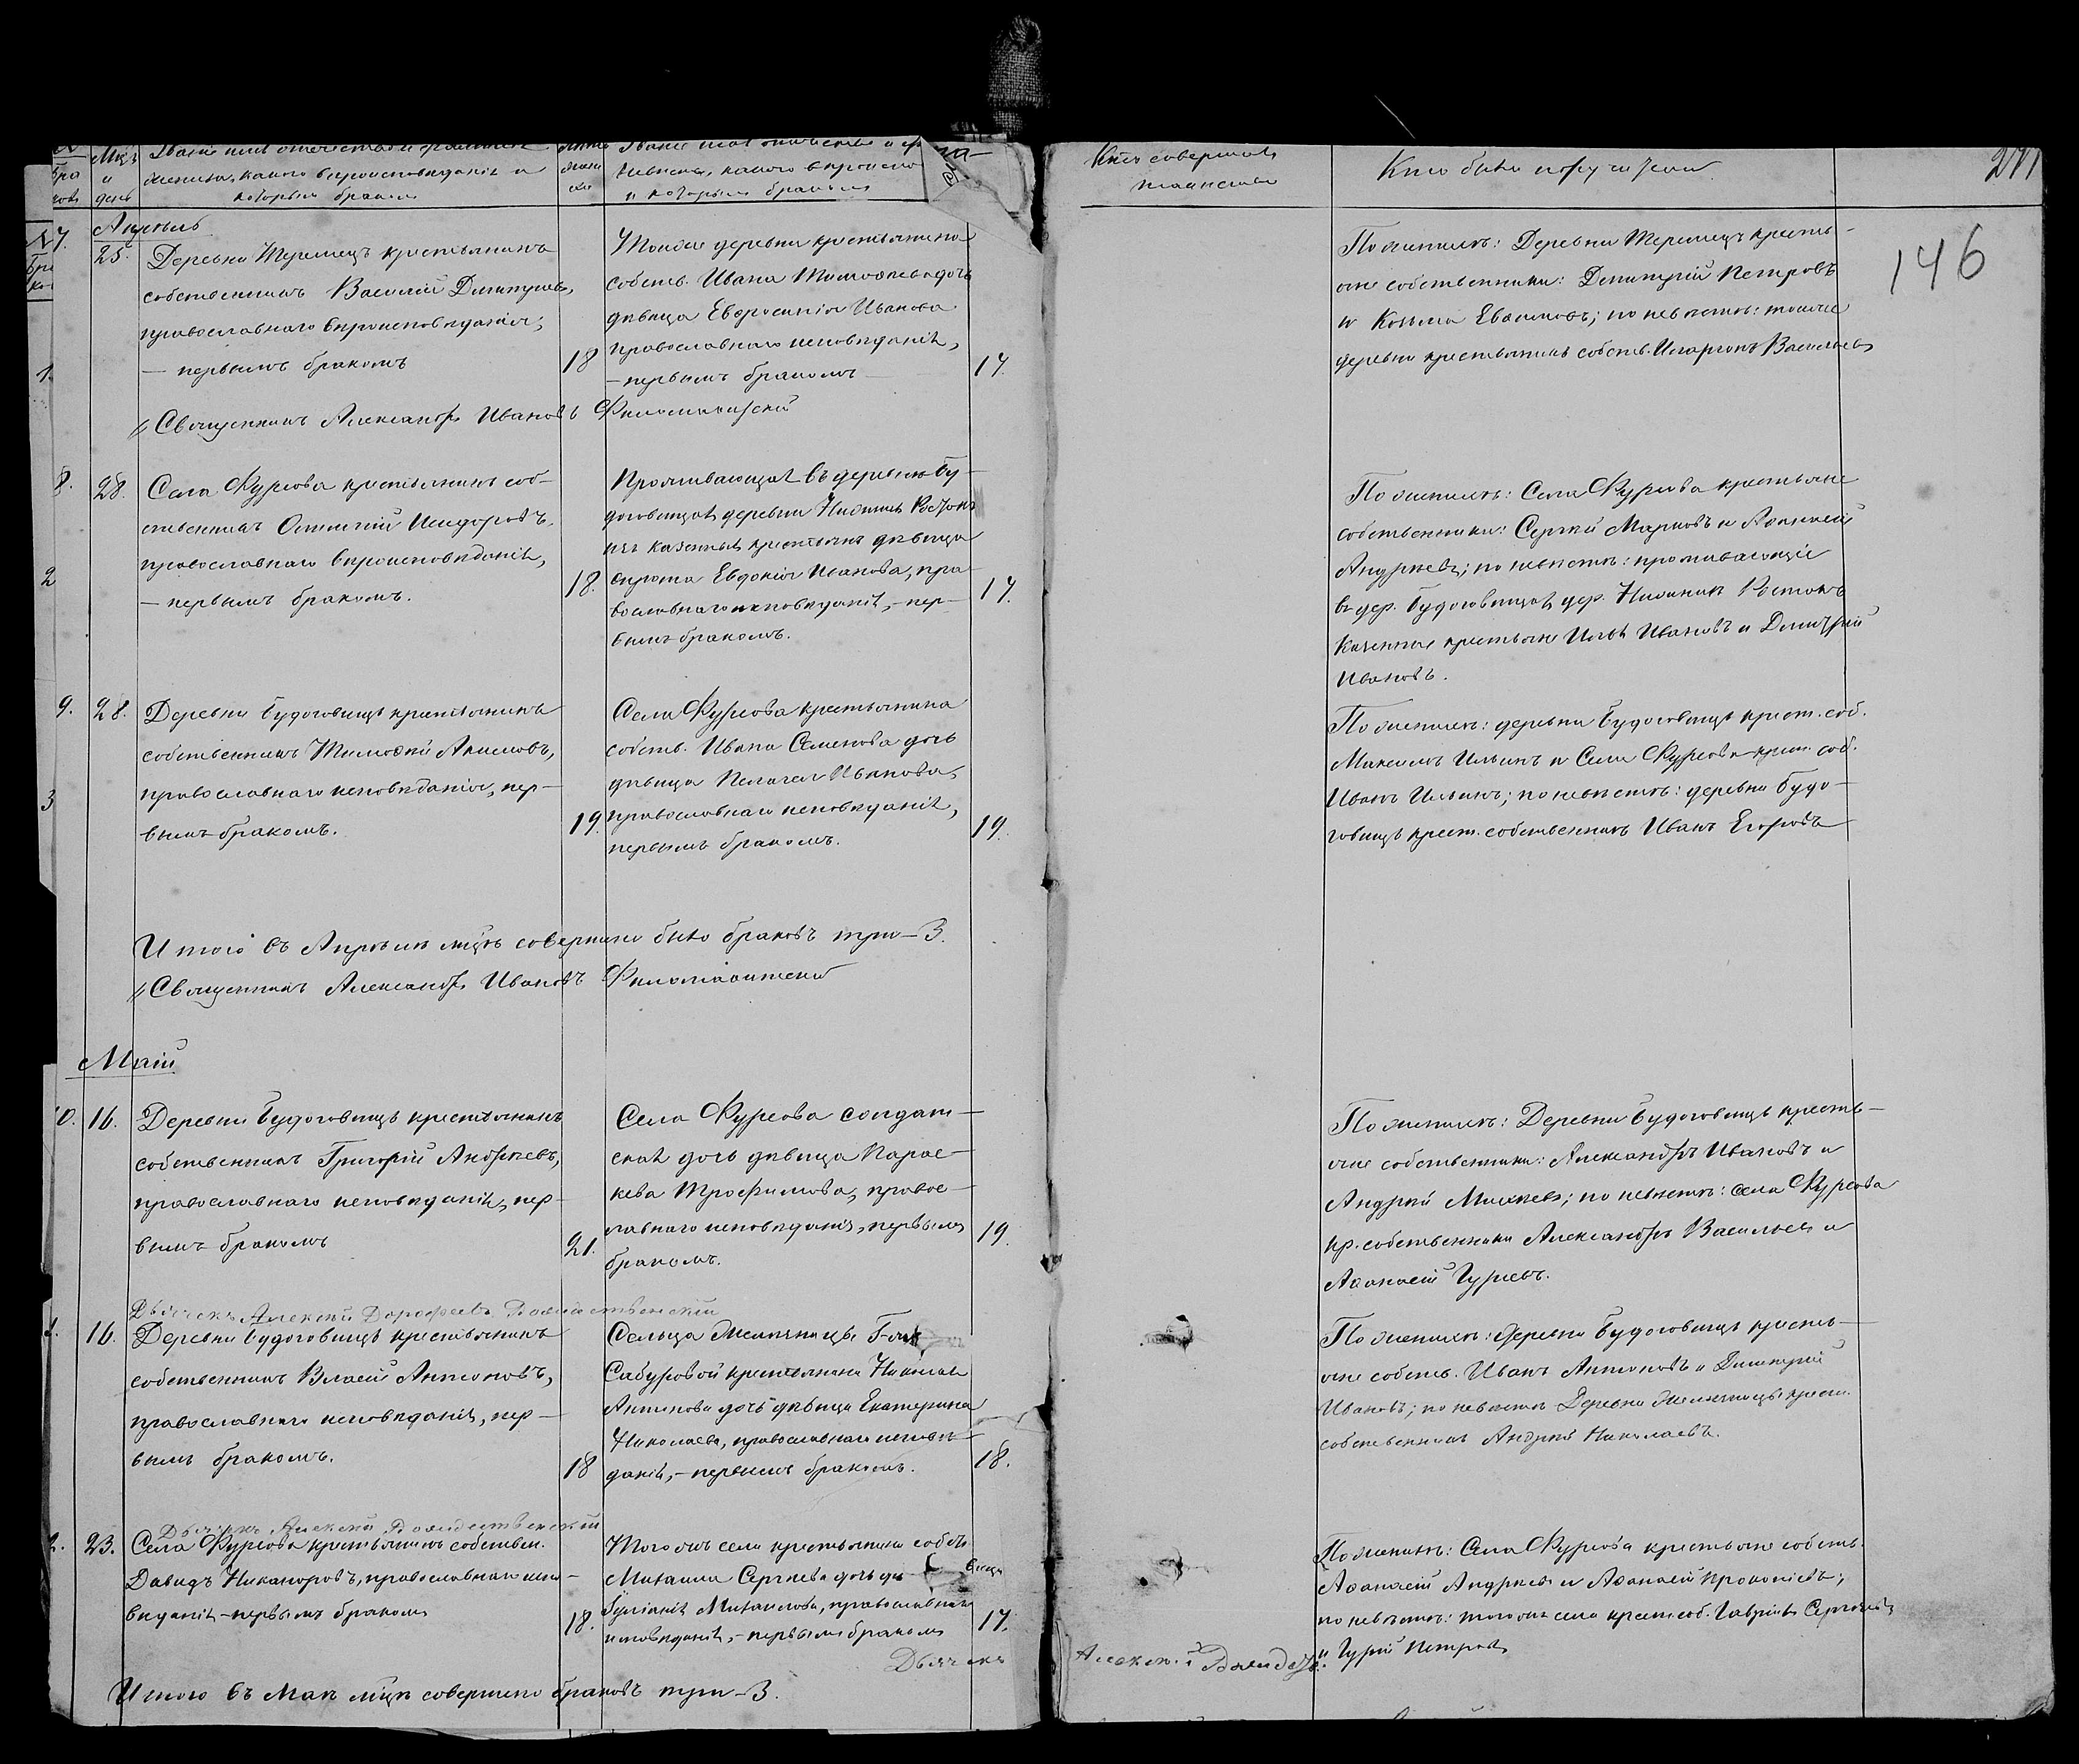 Мцъ
и
день
Званіе имя отчество и фамилія
жениха, какого вѣроисповѣданія и
которымъ бракомъ
Званіе имя отчество и
невѣсты, какого вѣроиспо
и которымъ бракомъ
Кто совершалъ
таинство
Кто были поручители
271
146
Апрѣль
7.
25.
Деревни Теремецъ крестьянинъ
собственникъ Василій Димитріевъ,
православнаго вѣроисповѣданія,
— первымъ бракомъ
18
Тойже деревни крестьянина
собств. Ивана Тимоѳеева дочь
дѣвица Евфросинія Иванова
православнаго исповѣданія,
— первымъ бракомъ —
17.
По женихѣ: Деревни Теремецъ кресть-
яне собственники: Димитрій Петровъ
и Козьма Евѳимовъ; по невѣстѣ: тойже
деревни крестьянинъ собств. Иларіонъ Васильевъ
Священникъ Александръ Ивановъ Филомаѳитскій
8.
28.
Села Фурсова крестьянинъ соб-
ственникъ Исидоровъ,
православнаго вѣроисповѣданія,
— первымъ бракомъ.
18.
Проживающая въ деревнѣ Бу-
договищахъ деревни
изъ казенныхъ крестьянъ дѣвица
сирота Евдокія Иванова, пра-
вославнаго исповѣданія, — пер-
вымъ бракомъ.
17.
По женихѣ: Села Фурсова крестьяне
собственники: Сергѣй Марковъ и Аѳанасій
Андреевъ; по невѣстѣ: проживающіе
въ дер. Будоговищахъ дер.
казенные крестьяне Илья Ивановъ и Димитрій
Ивановъ.
9.
28.
Деревни Будоговищъ крестьянинъ
собственникъ Тимоѳей Акимовъ,
православнаго исповѣданія, пер-
вымъ бракомъ.
19.
Села Фурсова крестьянина
собств. Ивана Семенова дочь
дѣвица Пелагея Иванова,
православнаго исповѣданія,
первымъ бракомъ.
19.
По женихѣ: деревни Будоговищъ крест. соб.
Максимъ Ильинъ и Села Фурсова крест. соб.
Иванъ Ильинъ; по невѣстѣ: деревни Будо-
говищъ крест. собственникъ Иванъ Егоровъ
Итого въ Апрѣлѣ мцѣ совершено было браковъ три—3.
Священникъ Александръ Ивановъ Филомаѳитскій
Маій
10.
16.
Деревни Будоговищъ крестьянинъ
собственникъ Григорій Андреевъ,
православнаго исповѣданія, пер-
вымъ бракомъ
21.
Села Фурсова солдат-
ская дочь дѣвица Парас-
кева Трофимова, правос-
лавнаго исповѣданія, первымъ
бракомъ.
19.
По женихѣ: Деревни Будоговищъ кресть-
яне собственники: Александръ Ивановъ и
Андрей Михеевъ; по невѣстѣ: села Фурсова
кр. собственники Александръ Васильевъ и
Аѳанасій Гурьевъ.
Дьячекъ Алексѣй Дорофеевъ Рождественскій
16.
Деревни Будоговищъ крестьянинъ
собственникъ Власій Антоновъ,
православнаго исповѣданія, пер-
вымъ бракомъ.
18
Сельца Г-жи
Сабуровой крестьянина Николая
Антипова дочь дѣвица Екатерина
Николаева, православнаго исповѣ-
данія, — первымъ бракомъ.
18.
По женихѣ: деревни Будоговищъ кресть-
яне собств. Иванъ Антоновъ и Димитрій
Ивановъ; по невѣстѣ Деревни крест.
собственникъ Андрей Николаевъ.
Дьячекъ Алексѣй Рождественскій
23.
Села Фурсова крестьянинъ собствен.
Давидъ Никаноровъ, православнаго испо-
вѣданія — первымъ бракомъ
18.
Тогожъ села крестьянина собств.
Михаила Сергѣева дочь дѣвица
Іуліанія Михаилова, православнаго
исповѣданія, — первымъ бракомъ
17.
По женихѣ: Села Фурсова крестьяне собств.
Аѳанасій Андреевъ и Аѳанасій Прокопіевъ;
по невѣстѣ: тогожъ села крест. соб. Гавріилъ Сергѣевъ
и Гурій Петровъ
Дьячекъ Алексѣй Рождеств.
Итого въ Маѣ мцѣ совершено браковъ три—3.